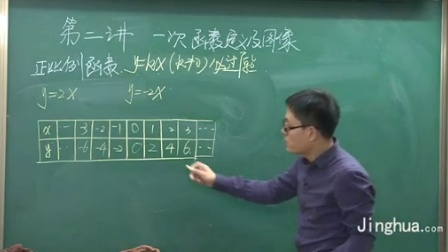 第二讲 一次函数定义及图象
正比例函数 y=kx (k≠0) 必过原点
y=2x y=-2x
x … -3 -2 -1 0 1 2 3 …
y … -6 -4 -2 0 2 4 6 …
Jinghua.com